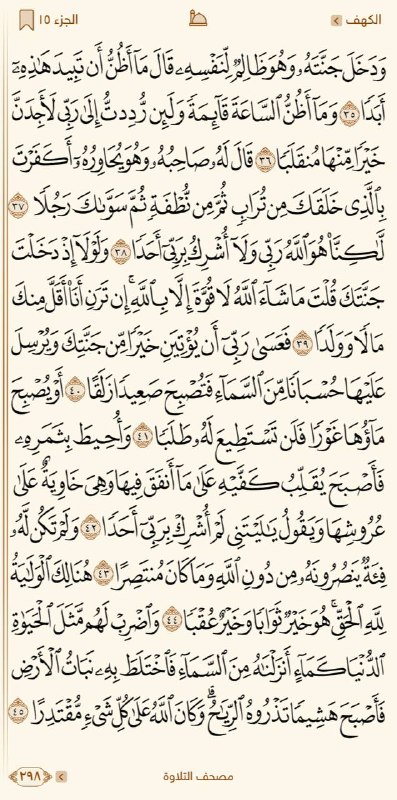 الكهف
الجزء ١٥
وَدَخَلَ جَنَّتَهُۥ وَهُوَ ظَالِمٌ لِّنَفْسِهِۦ قَالَ مَآ أَظُنُّ أَن تَبِيدَ هَٰذِهِۦٓ
أَبَدًا ٣٥ وَمَآ أَظُنُّ ٱلسَّاعَةَ قَآئِمَةً وَلَئِن رُّدِدتُّ إِلَىٰ رَبِّي لَأَجِدَنَّ
خَيْرًا مِّنْهَا مُنقَلَبًا ٣٦ قَالَ لَهُۥ صَاحِبُهُۥ وَهُوَ يُحَاوِرُهُۥٓ أَكَفَرْتَ
بِٱلَّذِي خَلَقَكَ مِن تُرَابٍ ثُمَّ مِن نُّطْفَةٍ ثُمَّ سَوَّىٰكَ رَجُلًا ٣٧
لَّٰكِنَّا۠ هُوَ ٱللَّهُ رَبِّي وَلَآ أُشْرِكُ بِرَبِّيٓ أَحَدًا ٣٨ وَلَوْلَآ إِذْ دَخَلْتَ
جَنَّتَكَ قُلْتَ مَا شَآءَ ٱللَّهُ لَا قُوَّةَ إِلَّا بِٱللَّهِۚ إِن تَرَنِ أَنَا۠ أَقَلَّ مِنكَ
مَالًا وَوَلَدًا ٣٩ فَعَسَىٰ رَبِّيٓ أَن يُؤْتِيَنِ خَيْرًا مِّن جَنَّتِكَ وَيُرْسِلَ
عَلَيْهَا حُسْبَانًا مِّنَ ٱلسَّمَآءِ فَتُصْبِحَ صَعِيدًا زَلَقًا ٤٠ أَوْ يُصْبِحَ
مَآؤُهَا غَوْرًا فَلَن تَسْتَطِيعَ لَهُۥ طَلَبًا ٤١ وَأُحِيطَ بِثَمَرِهِۦ
فَأَصْبَحَ يُقَلِّبُ كَفَّيْهِ عَلَىٰ مَآ أَنفَقَ فِيهَا وَهِيَ خَاوِيَةٌ عَلَىٰ
عُرُوشِهَا وَيَقُولُ يَٰلَيْتَنِي لَمْ أُشْرِكْ بِرَبِّيٓ أَحَدًا ٤٢ وَلَمْ تَكُن لَّهُۥ
فِئَةٌ يَنصُرُونَهُۥ مِن دُونِ ٱللَّهِ وَمَا كَانَ مُنتَصِرًا ٤٣ هُنَالِكَ ٱلْوَلَٰيَةُ
لِلَّهِ ٱلْحَقِّۚ هُوَ خَيْرٌ ثَوَابًا وَخَيْرٌ عُقْبًا ٤٤ وَٱضْرِبْ لَهُم مَّثَلَ ٱلْحَيَوٰةِ
ٱلدُّنْيَا كَمَآءٍ أَنزَلْنَٰهُ مِنَ ٱلسَّمَآءِ فَٱخْتَلَطَ بِهِۦ نَبَاتُ ٱلْأَرْضِ
فَأَصْبَحَ هَشِيمًا تَذْرُوهُ ٱلرِّيَٰحُۗ وَكَانَ ٱللَّهُ عَلَىٰ كُلِّ شَيْءٍ مُّقْتَدِرًا ٤٥
مصحف التلاوة
٢٩٨